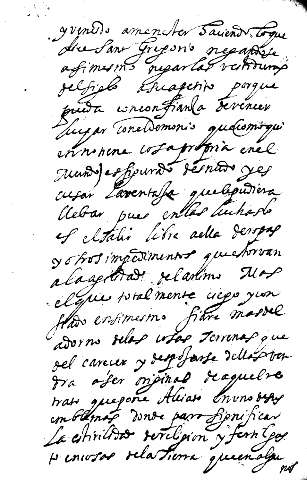 y viniendo a menester haciendo lo que
dice San Gregorio negandose
asi mesmo negar las vestiduras
del siglo su apetito porque
pueda con confianza de vencer
luchar con el Demonio que como
no tiene cosa propria en el
Mundo es figurado desnudo y es
cusar la ventaja que le pudiera
llebar pues en las luchas lo
es el salir libre della de ropas
y otros impedimentos que estorvan
a la agilidad del animo Mas
el que totalmente ciego y con
fiado en si mesmo fiare mas del
adorno de las cosas Terrenas que
del carecer y despojarse dellas ven
dra a ser original de aquel re
trato que pone Alciato en uno de sus
emblemas donde para significar
La esterilidad de religion y fertil pos
de la Tierra que en algu
nos